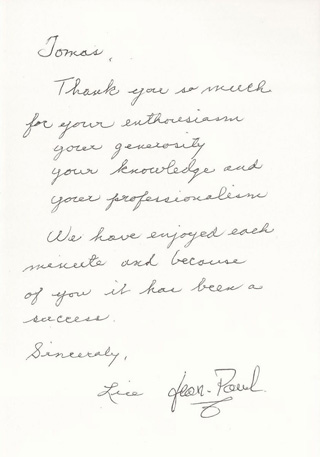 Tomas,
Thank you so much
for your enthousiasm
your generosity
your knowledge and
your professionalism
We have enjoyed each
minute and because
of you it has been a
success.
Sincerely,
Lise Jean-Paul